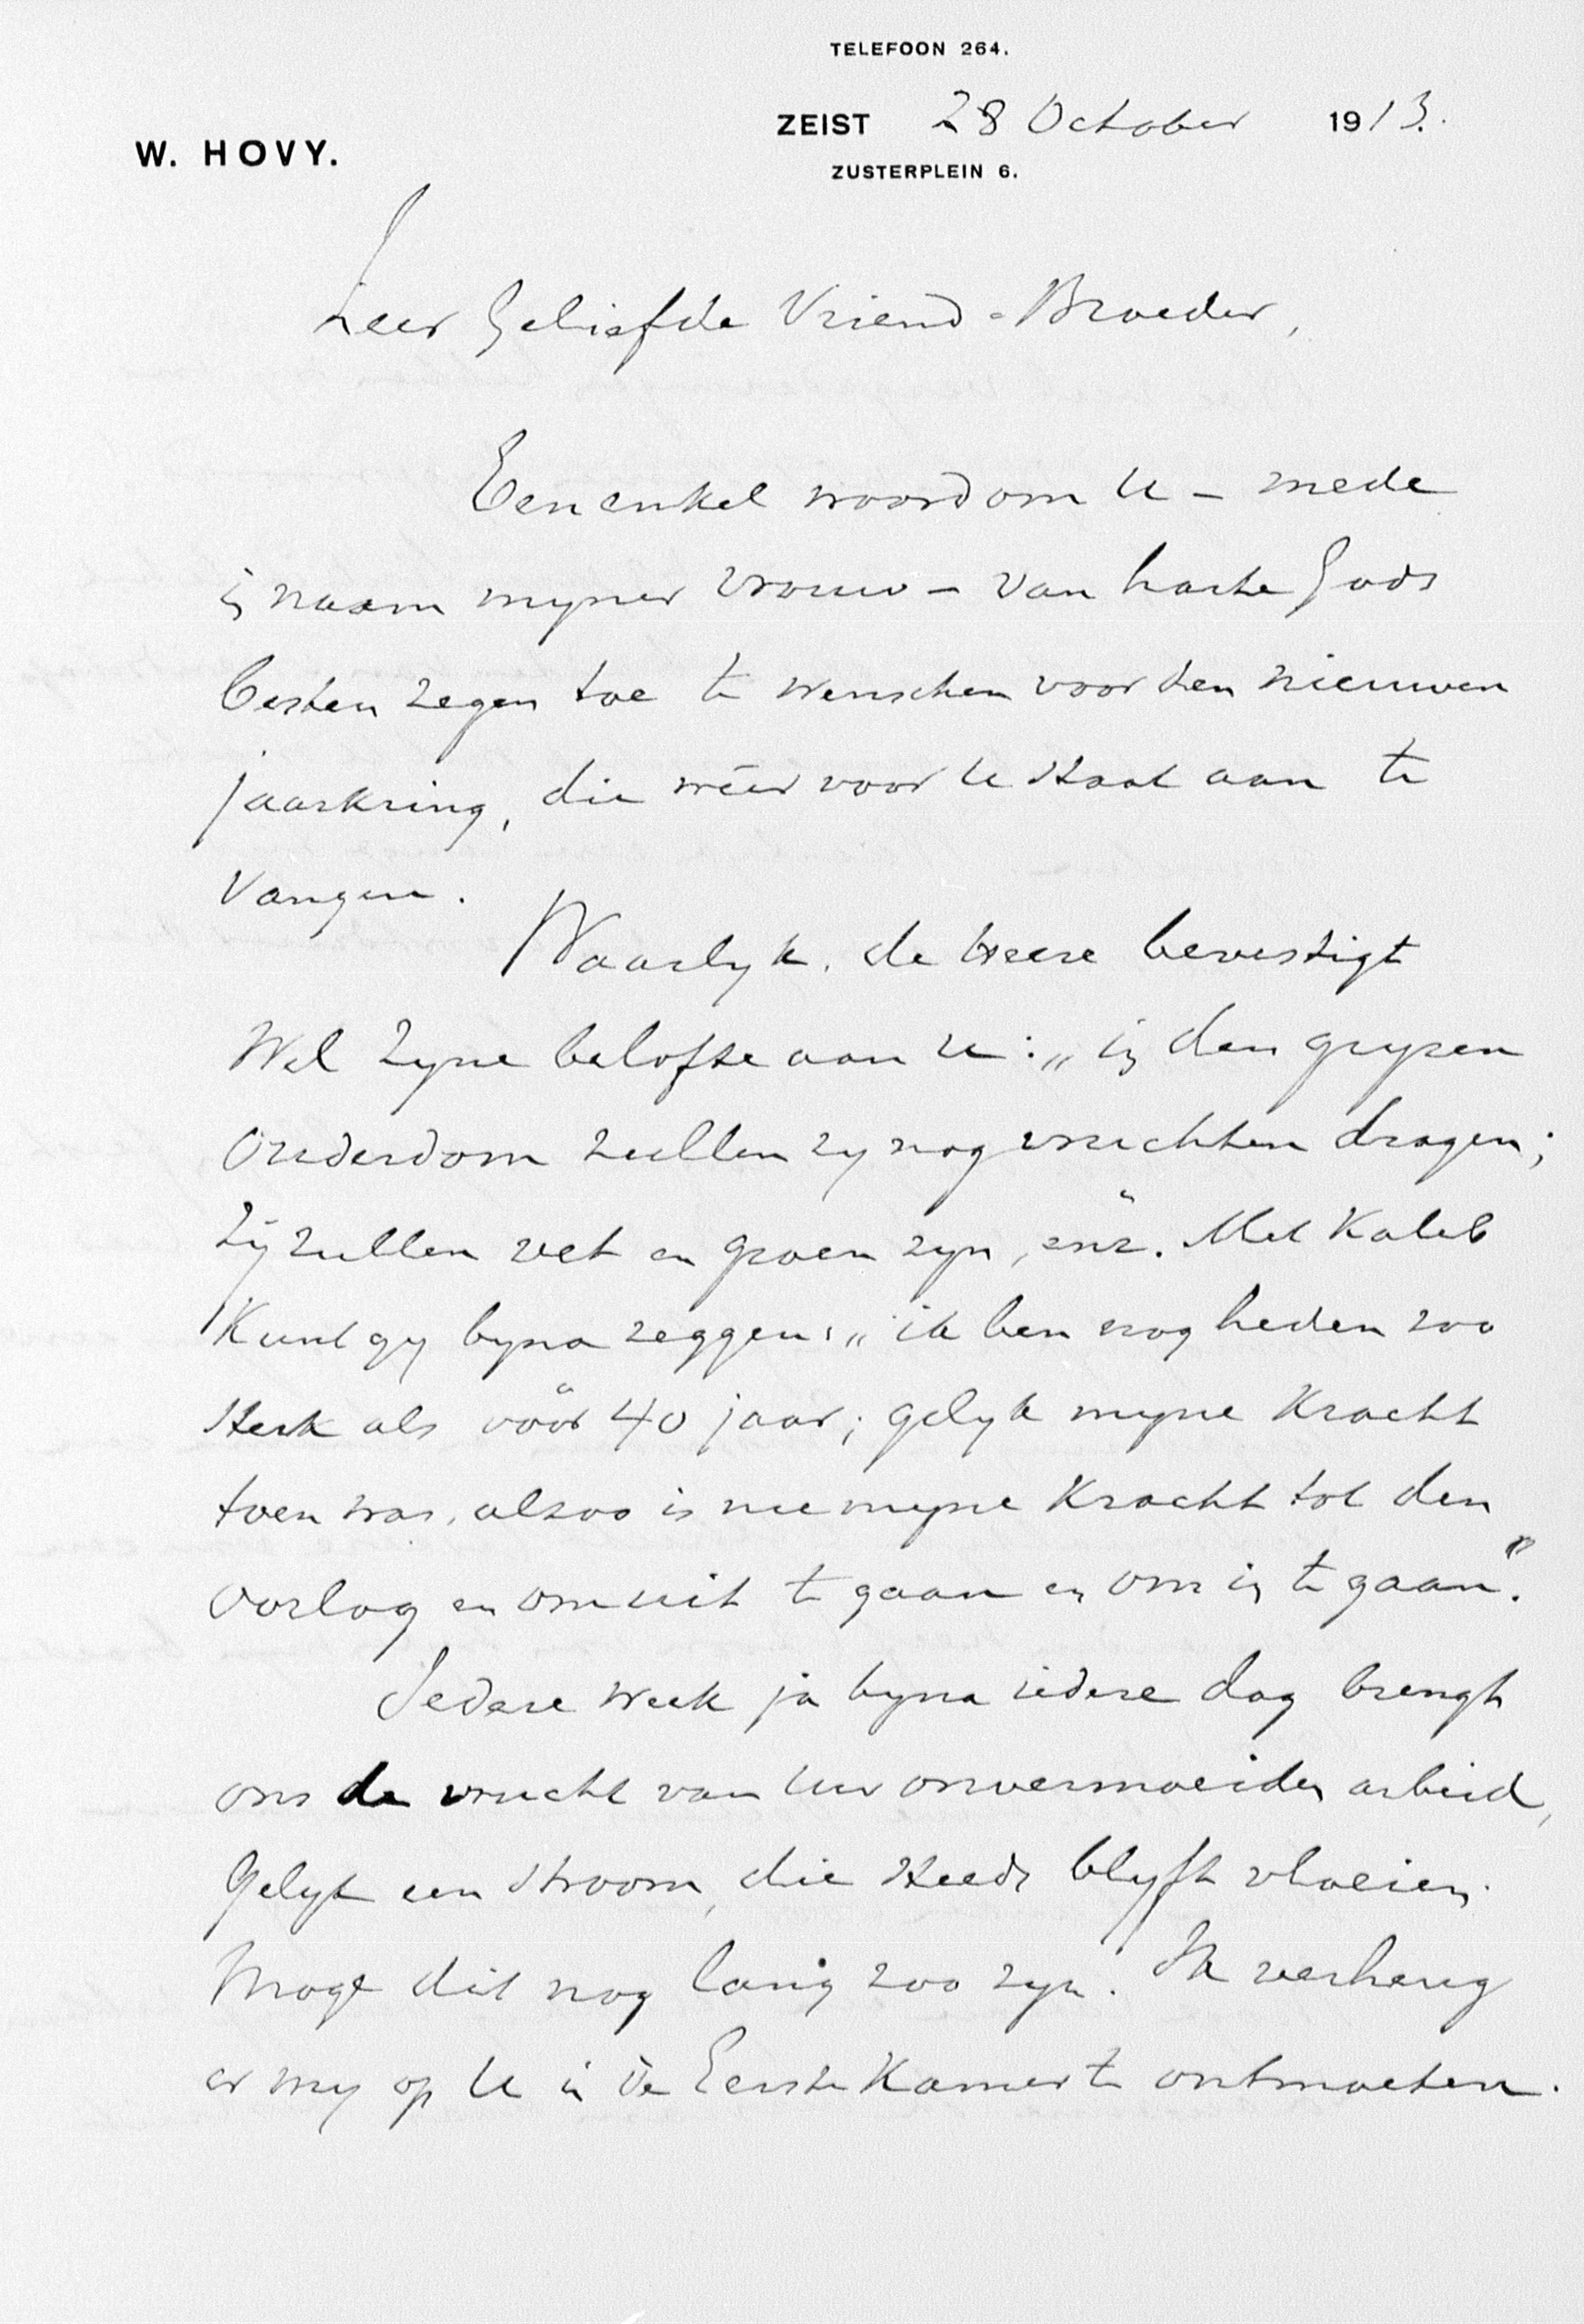 TELEFOON 264.
ZEIST 28 October 1913.
W. HOVY.
ZUSTERPLEIN 6.
Zeer Geliefde Vriend-Broeder,
Een enkel woord om U – mede
in naam mijner vrouw – van harte Gods
besten zegen toe te wenschen voor den nieuwen
jaarkring, die wéér voor U staat aan te
vangen.
Waarlijk, de Heere bevestigt
Wel Zijne belofte aan U: „in den grijzen
Ouderdom zullen zij nog vruchten dragen;
Zij zullen vet en groen zijn," enz. Met Kaleb
Kunt gij bijna zeggen: „ik ben nog heden zoo
sterk als vóór 40 jaar; gelijk mijne Kracht
toen was, alzoo is nu mijne Kracht tot den
oorlog en om uit te gaan en om in te gaan".
Iedere week ja bijna iedere dag brengt
ons de vrucht van Uw onvermoeiden arbeid,
Gelijk een stroom, die steeds blijft vloeien.
Moge dit nog lang zoo zijn. Ik verheug
er mij op U in de Eerste Kamer te ontmoeten.